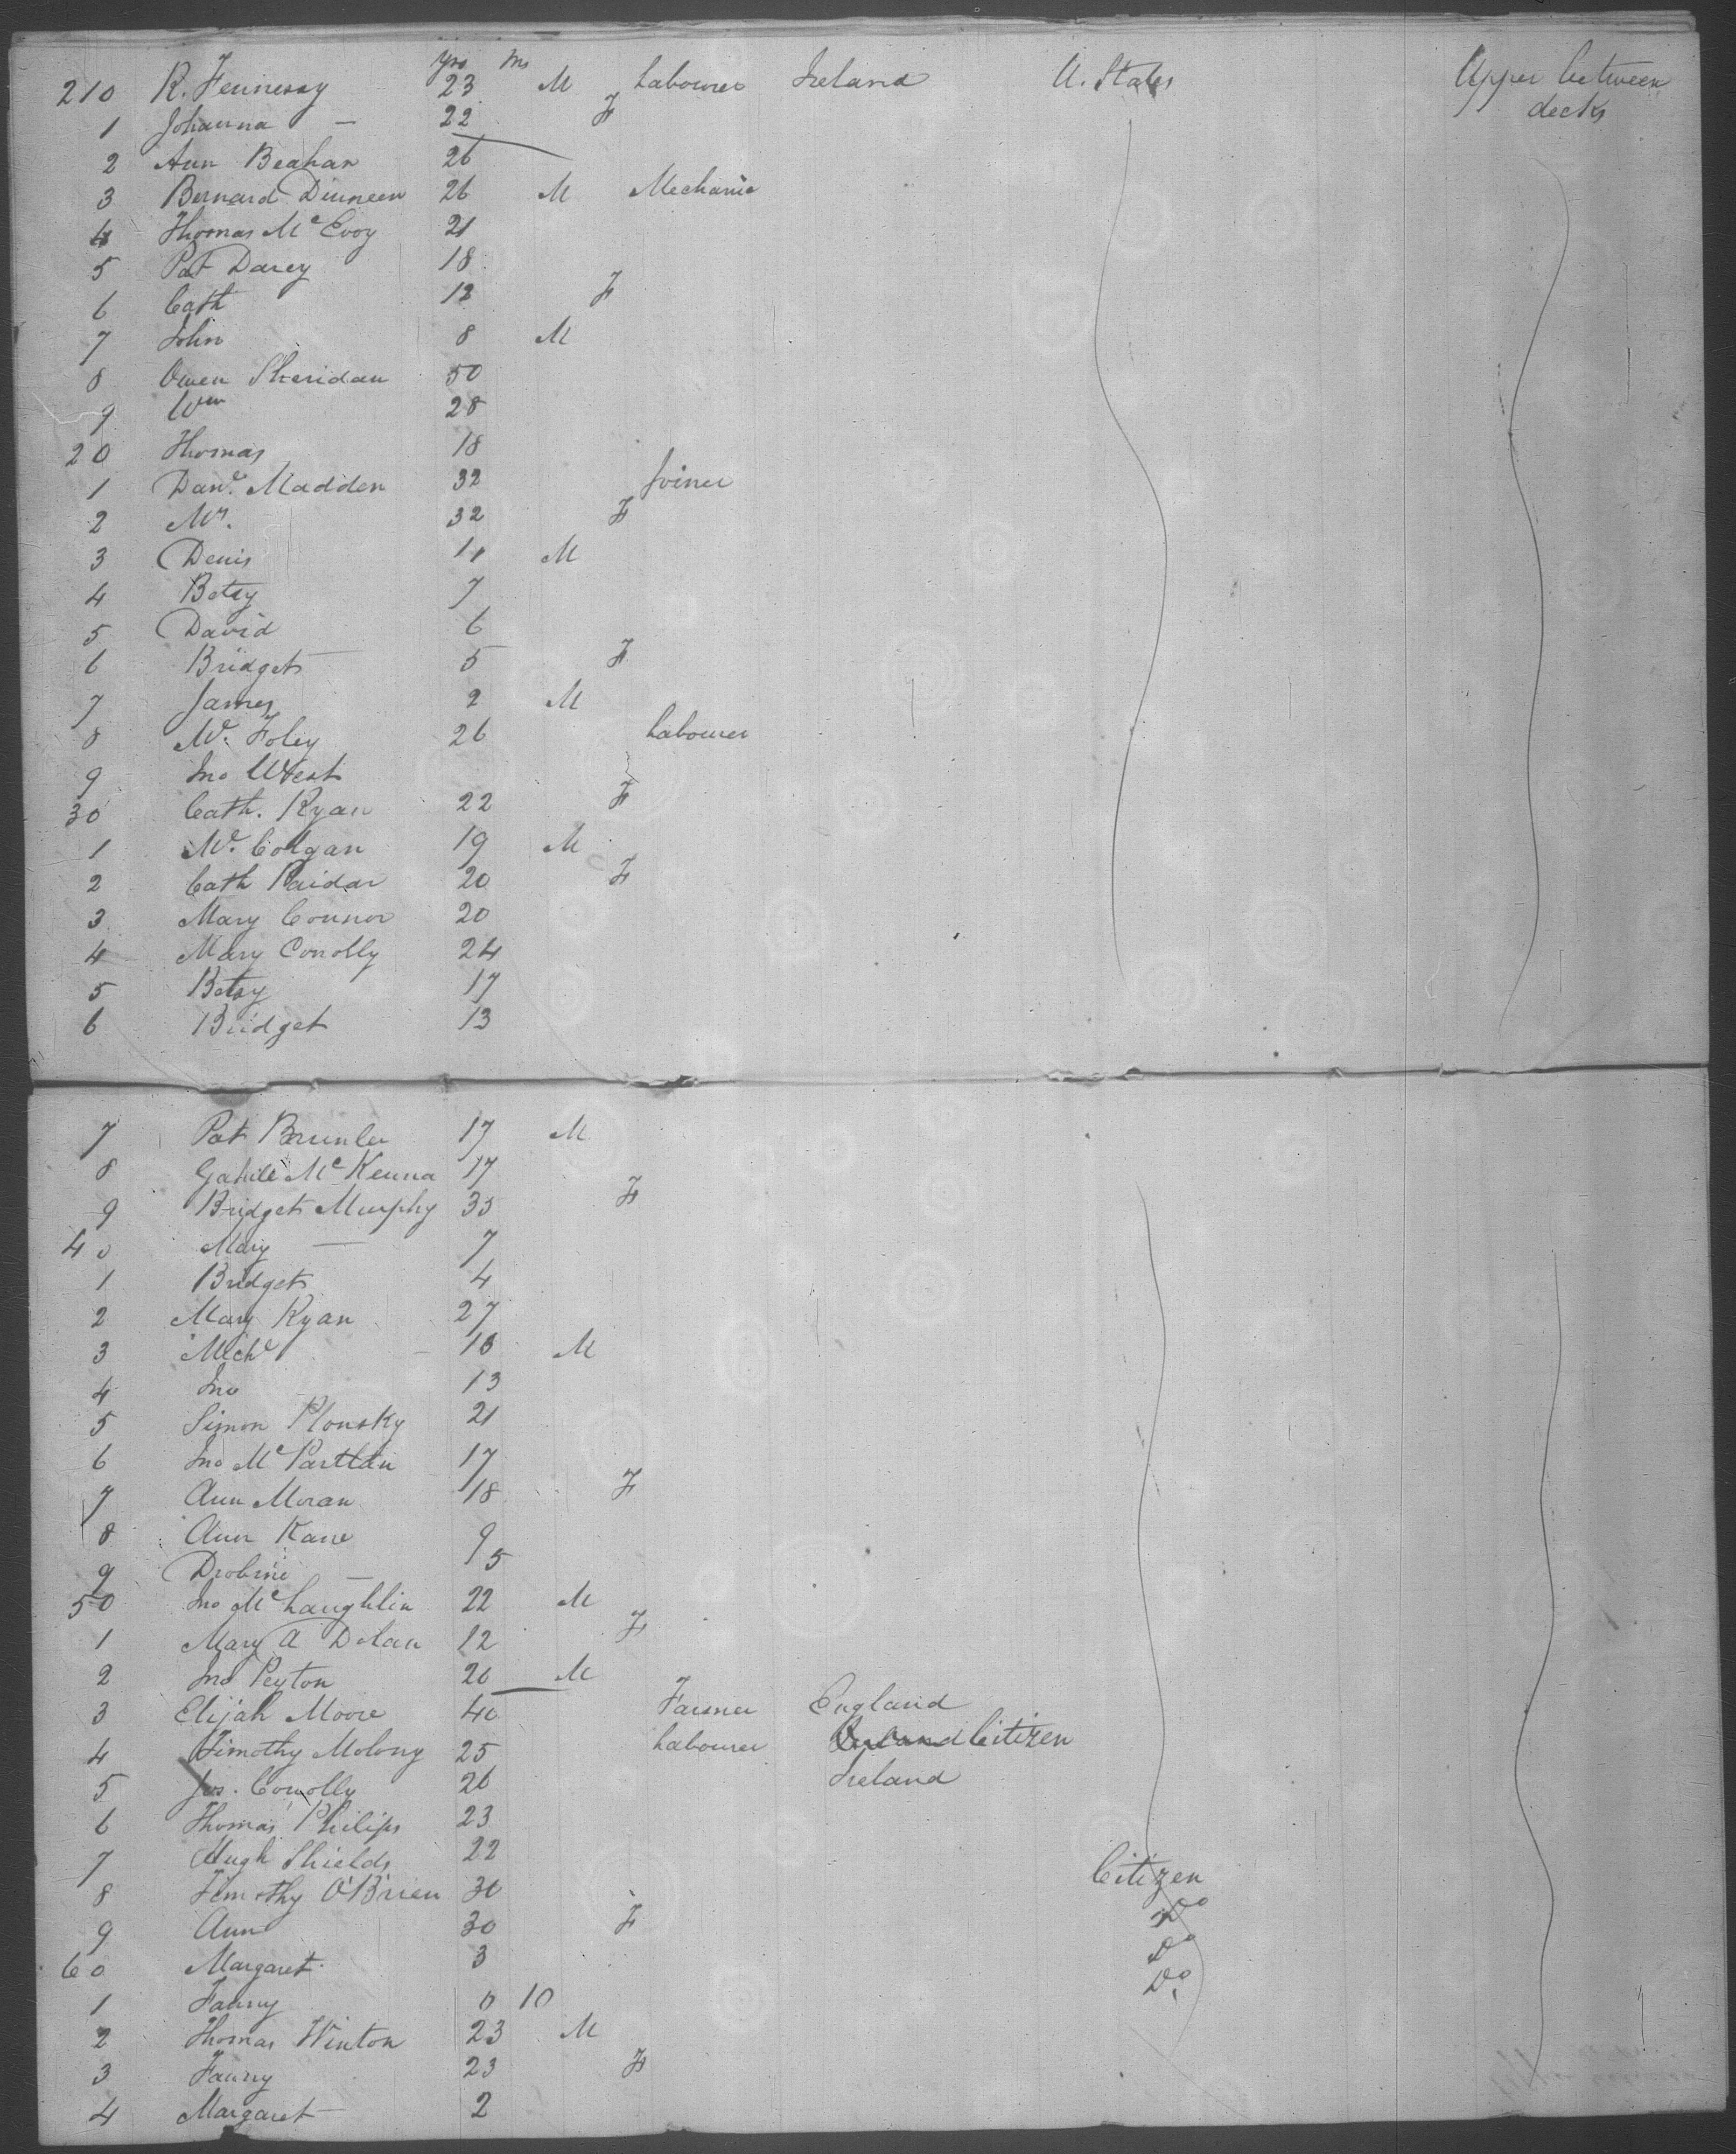 yrs ms
210 R. Fennessy 23 M Labourer Ireland U. States Upper between
1 Johanna — 22 F decks
2 Ann Beahan 26
3 Bernard Dinneen 26 M Mechanic
4 Thomas McEvoy 21
5 Pat Darcy 18
6 Cath 12 F
7 John 8 M
8 Owen Sheridan 50
9 Wm 28
20 Thomas 18
1 Danl. Madden 32 Joiner
2 Mrs. 32 F
3 Denis 11 M
4 Betsy 7
5 David 6
6 Bridget 5 F
7 James 2 M
8 Foley 26 Labourer
9 Jno West
30 Cath. Ryan 22 F
1 Colgan 19 M
2 Cath 20 F
3 Mary Connor 20
4 Mary Conolly 24
5 Betsy 17
6 Bridget 13
7 Pat 17 M
8 McKenna 17
9 Bridget Murphy 35 F
40 Mary — 7
1 Bridget 4
2 Mary Ryan 27
3 Michl M
4 Jno 13
5 Simon Plonsky 21
6 Jno McPartlan 17
7 Ann Moran 18 F
8 Ann Kane 9
9 — 5
50 Jno McLaughlin 22 M
1 Mary A Dolan 12 F
2 Jno Peyton 20 M
3 Elijah Moore 40 Farmer England
4 Timothy Molony 25 Labourer Citizen
5 Jas. Conolly 26 Ireland
6 Thomas Philips 23
7 Hugh Shields 22
8 Timothy O'Brien 30 Citizen
9 Ann 30 F Do
60 Margaret 3 Do
1 Fanny 0 10 Do
2 Thomas Winton 23 M
3 Fanny 23 F
4 Margaret 2